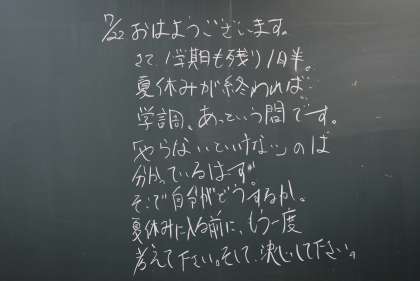 7/22 おはようございます。
さて、1学期も残り1日半。
夏休みが終われば…
学調、あっという間です。
「やらないといけない」のは
分かっているはず。
そこで自分がどうするか。
夏休みに入る前に、もう一度
考えて下さい。そして、決心して下さい。